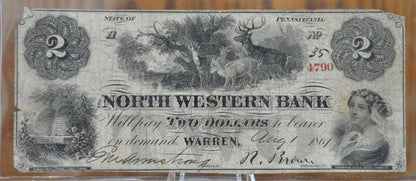 STATE OF PENNSYLVANIA
2 A No 35 2
4790
NORTH WESTERN BANK
Will pay TWO DOLLARS to bearer
on demand WARREN, Aug 1 1861
R. Brown